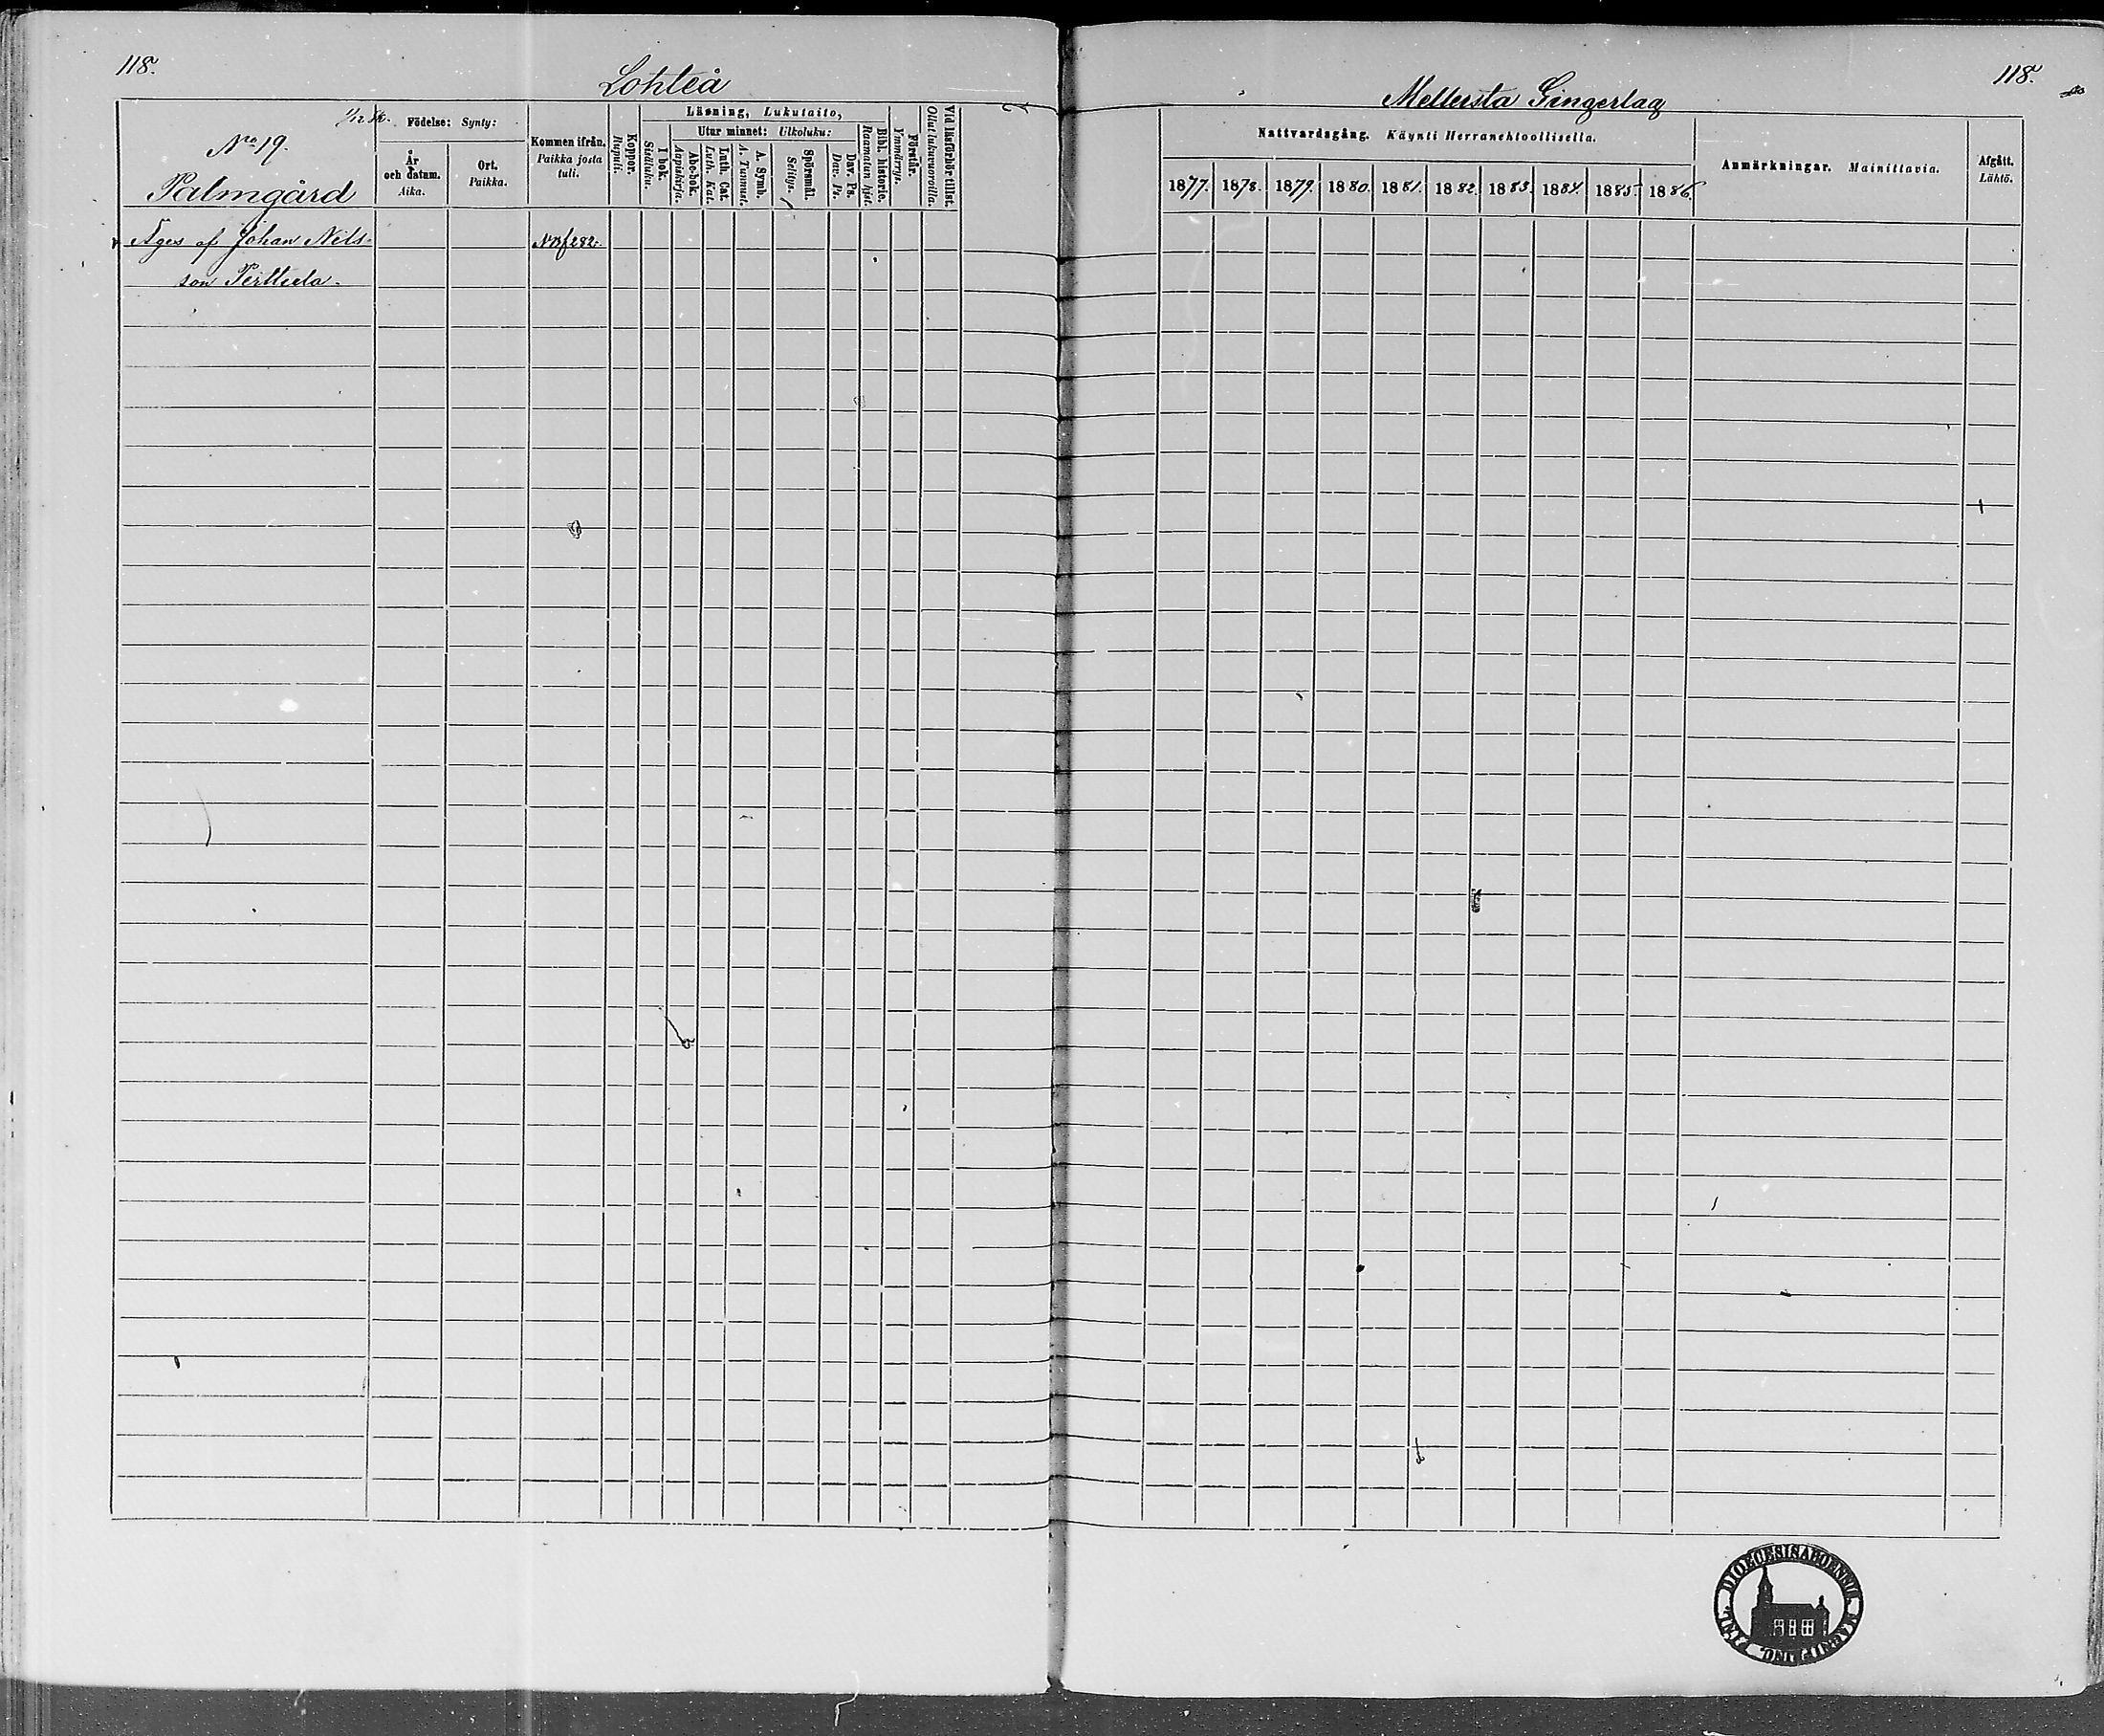 118.
Lohteå
No 19.
Palmgård
Födelse: Synty:
År och datum. Aika.
Ort. Paikka.
Kommen ifrån. Paikka josta tuli.
Koppor. Rupuli.
Läsning, Lukutaito,
I bok. Sisäluku.
Utur minnet: Ulkoluku:
Abc-bok. Aapiskirja.
Luth. Cat. Luth. Kat.
A. Symb. A. Tunnust.
Spörsmål. Selitys.
Dav. Ps. Dav. Ps.
Bibl. historie. Raamatun hist.
Förstår. Ymmärrys.
Vid läsförhör tillst. Ollut lukuvuoroilla.
Äges af Johan Nils-
son Perttula.
118.
Mellersta Gingerlag
Nattvardsgång. Käynti Herranehtoollisella.
1877. 1878. 1879. 1880. 1881. 1882. 1883. 1884. 1885. 1886.
Anmärkningar. Mainittavia.
Afgått. Lähtö.